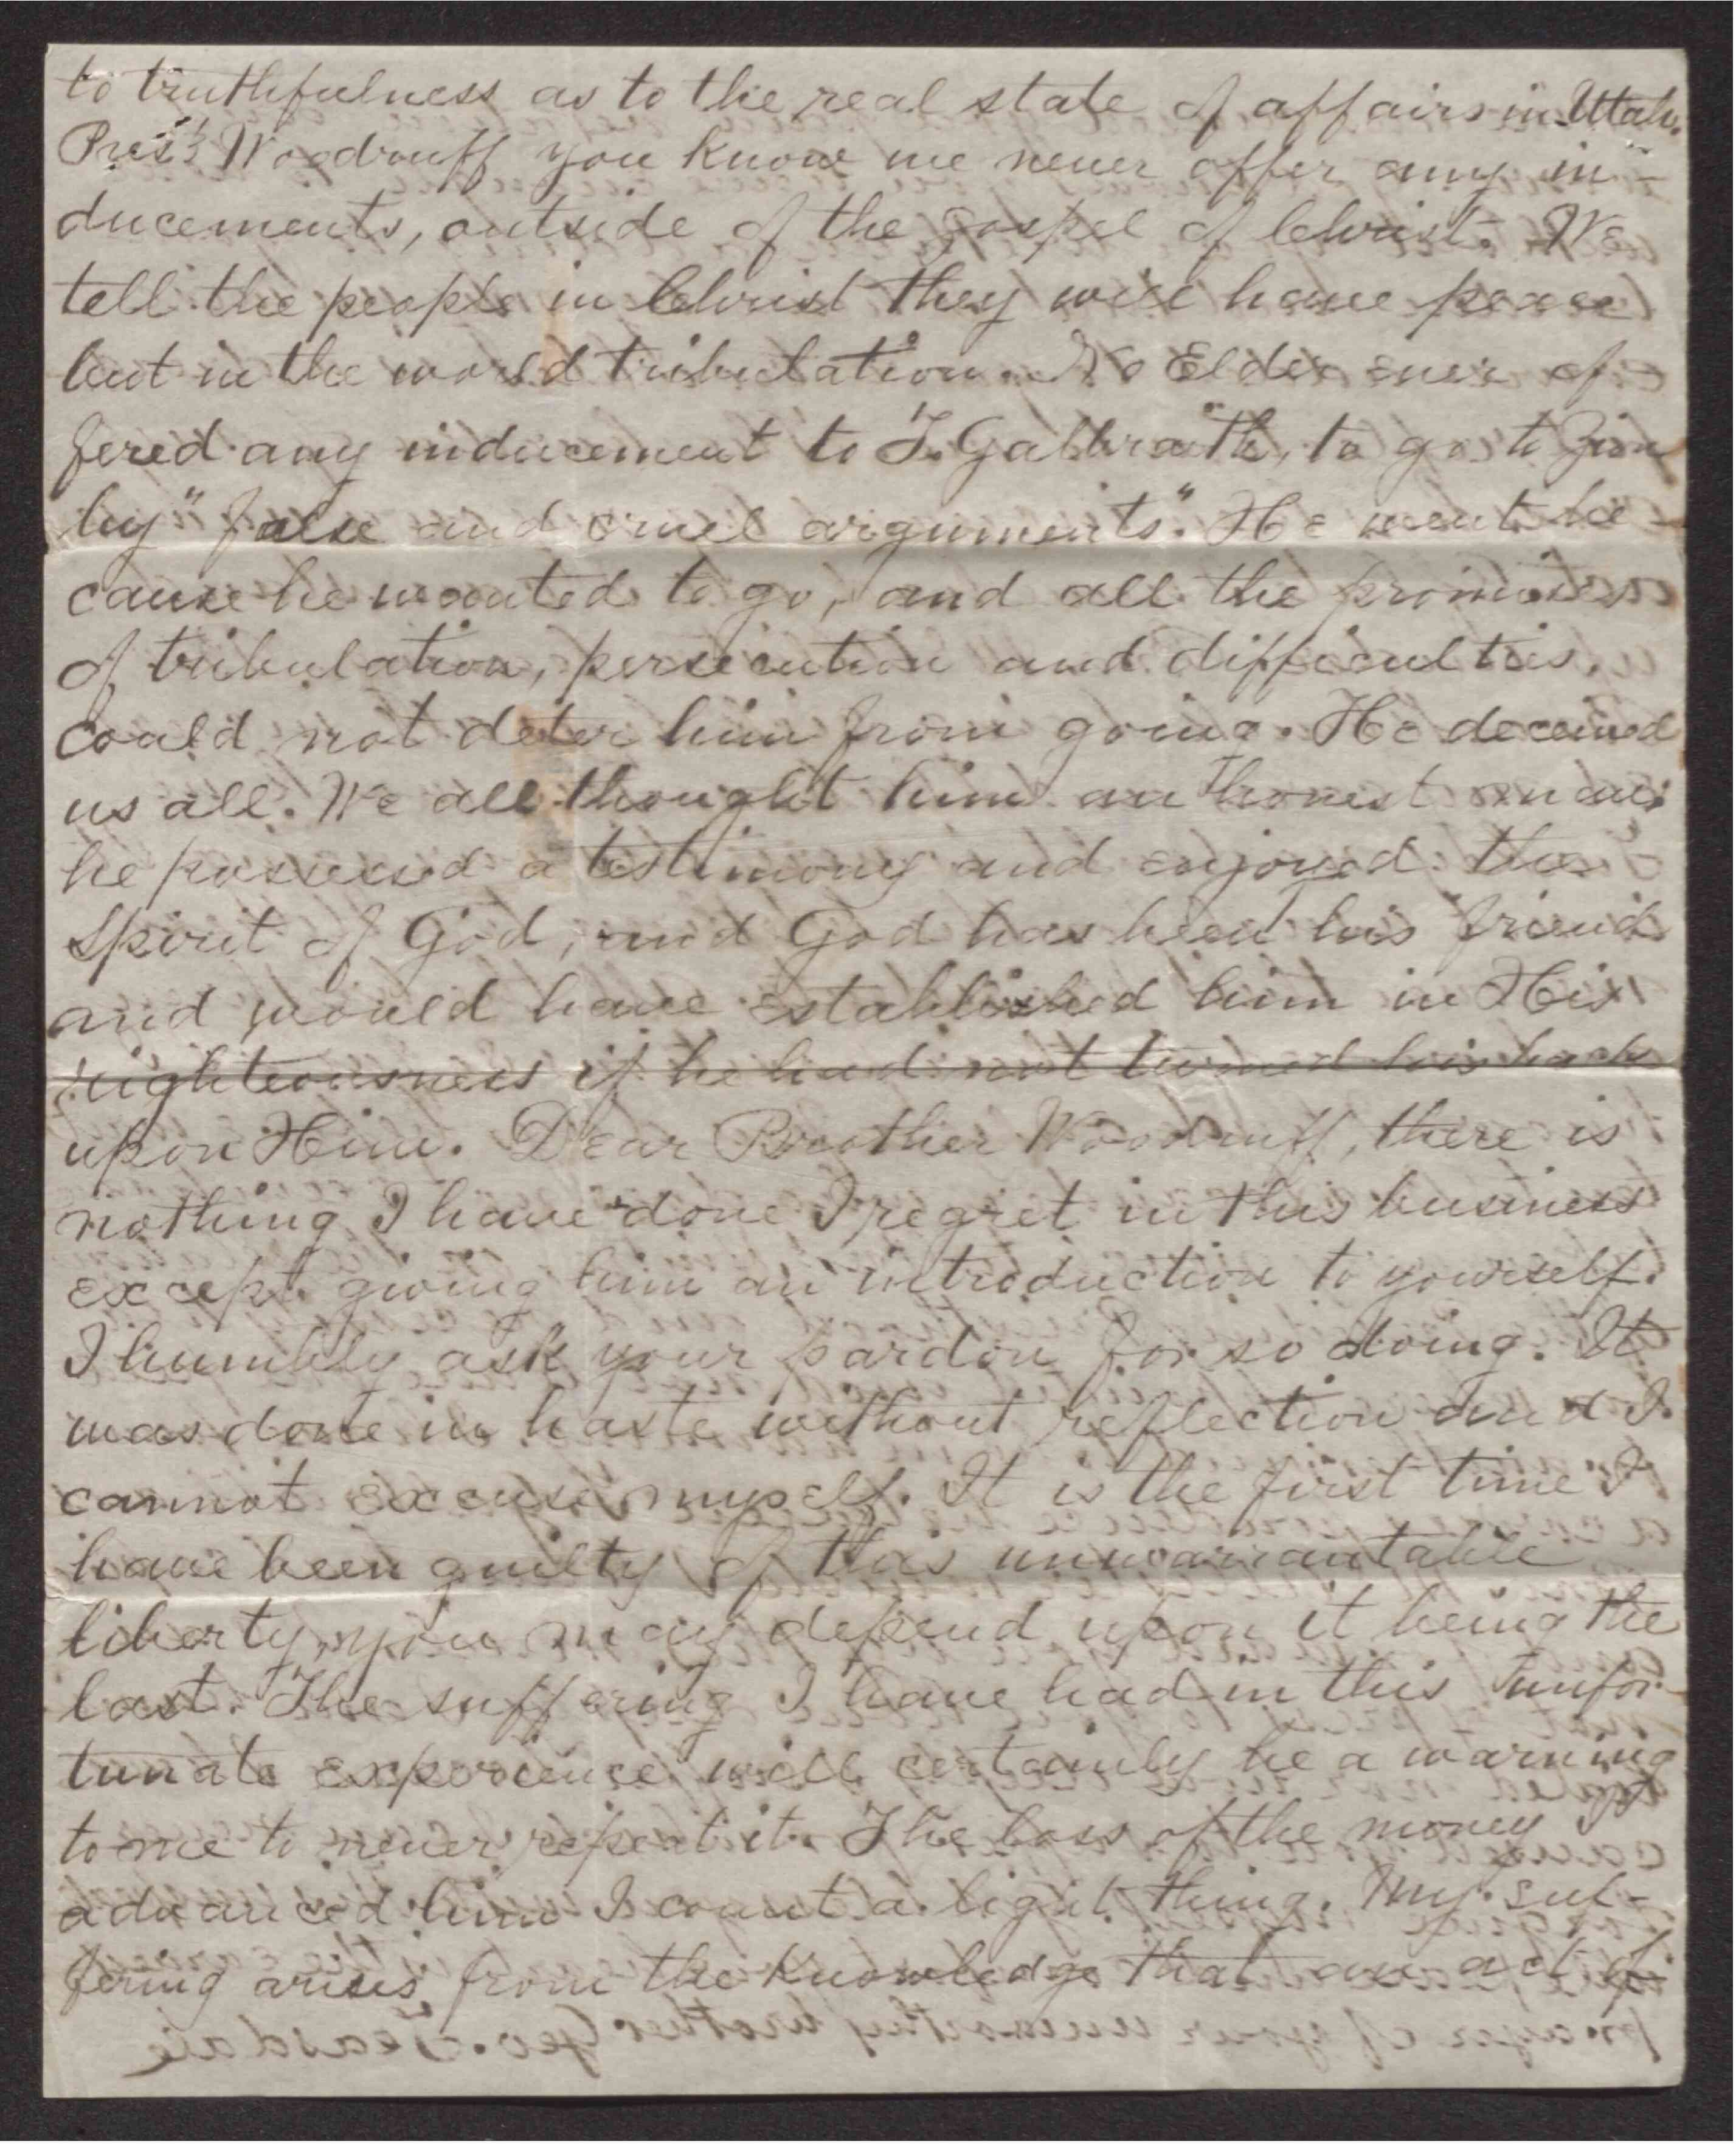 to truthfulness as to the real state of affairs in Utah.
Pres't Woodruff you know we never offer any in-
ducements, outside of the gospel of Christ. We
tell the people in Christ they will have peace
but in the world tribulation. No Elder ever of
fered any inducement to J. Galbraith, to go to Zion
by "false and cruel arguments". He went be-
cause he wanted to go, and all the promises
of tribulation, persecution and difficulties,
could not deter him from going. He deceived
us all. We all thought him an honest man;
he possessed a testimony and enjoyed the
Spirit of God, and God has been his friend
and would have established him in His
righteousness if he had not turned his back
upon Him. Dear Brother Woodruff, there is
nothing I have done I regret in this business
except giving him an introduction to yourself.
I humbly ask your pardon for so doing. It
was done in haste without reflection and I
cannot excuse myself. It is the first time I
have been guilty of this unwarrantable
liberty, you may depend upon it being the
last. The suffering I have had in this unfor-
tunate experience will certainly be a warning
to me to never repeat it. The loss of the money I
advanced him I count a light thing. My suf-
fering arises from the knowledge that an act of
prayer of your unworthy brother Geo. Teasdale